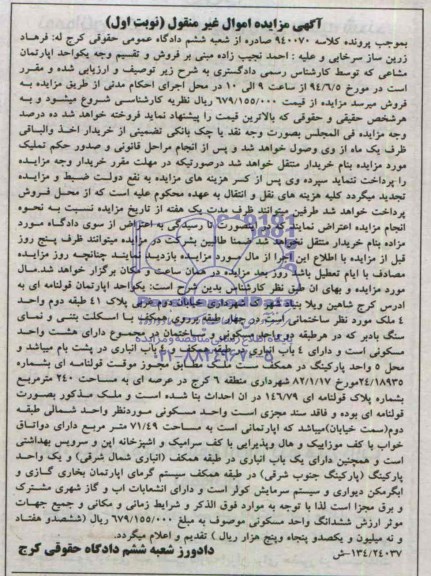 آگهی مزایده اموال غیر منقول (نوبت اول)
بموجب پرونده کلاسه ۹۴۰۰۷۰ صادره از شعبه ششم دادگاه عمومی حقوقی کرج له: فرهاد
زرین ساز سرخابی و علیه : احمد نجیب زاده مبنی بر فروش و تقسیم وجه یکواحد اپارتمان
مشاعی که توسط کارشناس رسمی دادگستری به شرح زیر توصیف و ارزیابی شده و مقرر
است در مورخ ۹۴/۶/۵ از ساعت ۹ الی ۱۰ در محل اجرای احکام مدنی از طریق مزایده به
فروش میرسد مزایده از قیمت ۶۷۹/۱۵۵/۰۰۰ ریال نظریه کارشناسی شروع میشود و به
هرشخص حقیقی و حقوقی که بالاترین قیمت را پیشنهاد نماید فروخته خواهد شد ده درصد
وجه مزایده فی المجلس بصورت وجه نقد یا چک بانکی تضمینی از خریدار اخذ والباقی
ظرف یک ماه از وی وصول خواهد شد و پس از انجام مراحل قانونی و صدور حکم تملیک
مورد مزایده بنام خریدار منتقل خواهد شد درصورتیکه در مهلت مقرر خریدار وجه مزایده
را پرداخت ننماید سپرده وی پس از کسر هزینه های مزایده به نفع دولت ضبط و مزایده
تجدید میگردد کلیه هزینه های نقل و انتقال به عهده محکوم علیه است که از محل فروش
پرداخت خواهد شد طرفین میتوانند ظرف مدت یک هفته از تاریخ مزایده نسبت به نحوه
انجام مزایده اعتراض نمایند که در اینصورت تا رسیدگی به اعتراض از سوی دادگاه مورد
مزاده بنام خریدار منتقل نخواهد شد ضمنا طالبین بشرکت در مزایده میتوانند ظرف پنج روز
قبل از مزایده با اطلاع این اجرا از مال مورد مزایده بازدید نمایند چنانچه روز مزایده
مصادف با ایام تعطیل باشد روز بعد مزایده در همان ساعت و مکان برگزار خواهد شد.مال
مورد مزایده و بهای ان طبق نظر کارشناس بدین شرح است: یکواحد اپارتمان قولنامه ای به
ادرس کرج شاهین ویلا بنیاد شهرک شهرداری خیابان دوم غربی پلاک ۴۱ طبقه دوم واحد
۴ ملک مورد نظر ساختمانی است در چهار طبقه بروی همکف با اسکلت بتنی و نمای
سنگ بادبر که در هرطبقه دو واحد مسکونی و ساختمان در مجموع دارای هشت واحد
مسکونی است و دارای ۴ باب انباری در طبقه همکف و ۴ باب انباری در پشت بام میباشد و
محل ۵ واحد پارکینگ در همکف است که مطابق مجوز موقت قولنامه ای بشماره
۲۴/۱۸۹۳۵مورخ ۸۲/۱/۱۷ شهرداری منطقه ۶ کرج در عرصه ای به مساحت ۲۴۰ مترمربع
بشماره پلاک قولنامه ای ۱۴۶/۷۹ در ان احداث بنا شده است و ملک مذکور بصورت
قولنامه ای بوده و فاقد سند مجزی است واحد مسکونی موردنظر واحد شمالی طبقه
دوم(سمت خیابان)میباشد که اپارتمانی است به مساحت ۷۱/۴۹ متر مربع دارای دواتاق
خواب با کف موزاییک و هال وپذیرایی با کف سرامیک و اشپزخانه اپن و سرویس بهداشتی
است و همچنین دارای یک باب انباری در طبقه همکف (انباری شمال شرقی) و یک واحد
پارکینگ (پارکینگ جنوب شرقی) در طبقه همکف سیستم گرمای اپارتمان بخاری گازی و
ابگرمکن دیواری و سیستم سرمایش کولر است و دارای انشعابات اب و گاز شهری مشترک
و برق مجزا است لذا با توجه به موارد فوق الذکر و شرایط زمانی و مکانی و جمیع جهات
موثر ارزش ششدانگ واحد مسکونی موصوف به مبلغ ۶۷۹/۱۵۵/۰۰۰ ریال (ششصدو هفتاد
و نه میلیون و یکصدو پنجاه وپنج هزار ریال ) تقدیم و اعلام میگردد.
۱۳۴/۲۴۰۳۷-ش
دادورز شعبه ششم دادگاه حقوقی کرج